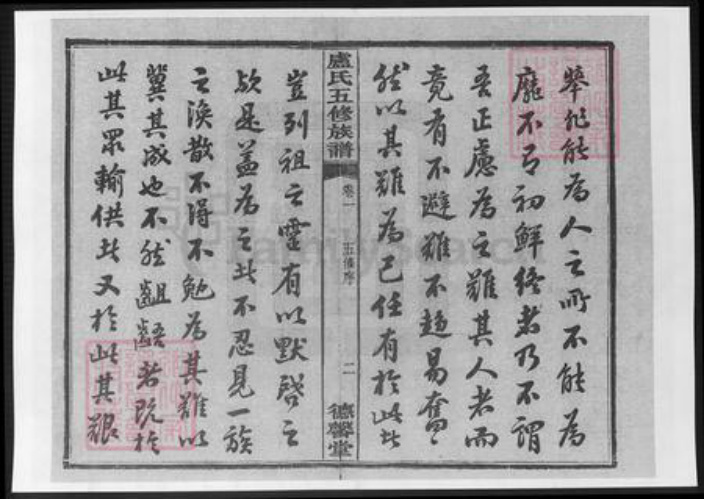 舉非能為人之所不能為
靡不有初鮮終者乃不謂
吾正慮為之難其人者而
竟有不避難不趨易奮
然以其難為己任有於此此
盧氏五修族譜
卷一
五修序
二
德馨堂
豈列祖之靈有以默啓之
歟是蓋為之此不忍見一族
之渙散不得不勉為其難以
冀其成也不然齟齬者既於
此其眾輸供此又於此其艱
FamilySearch